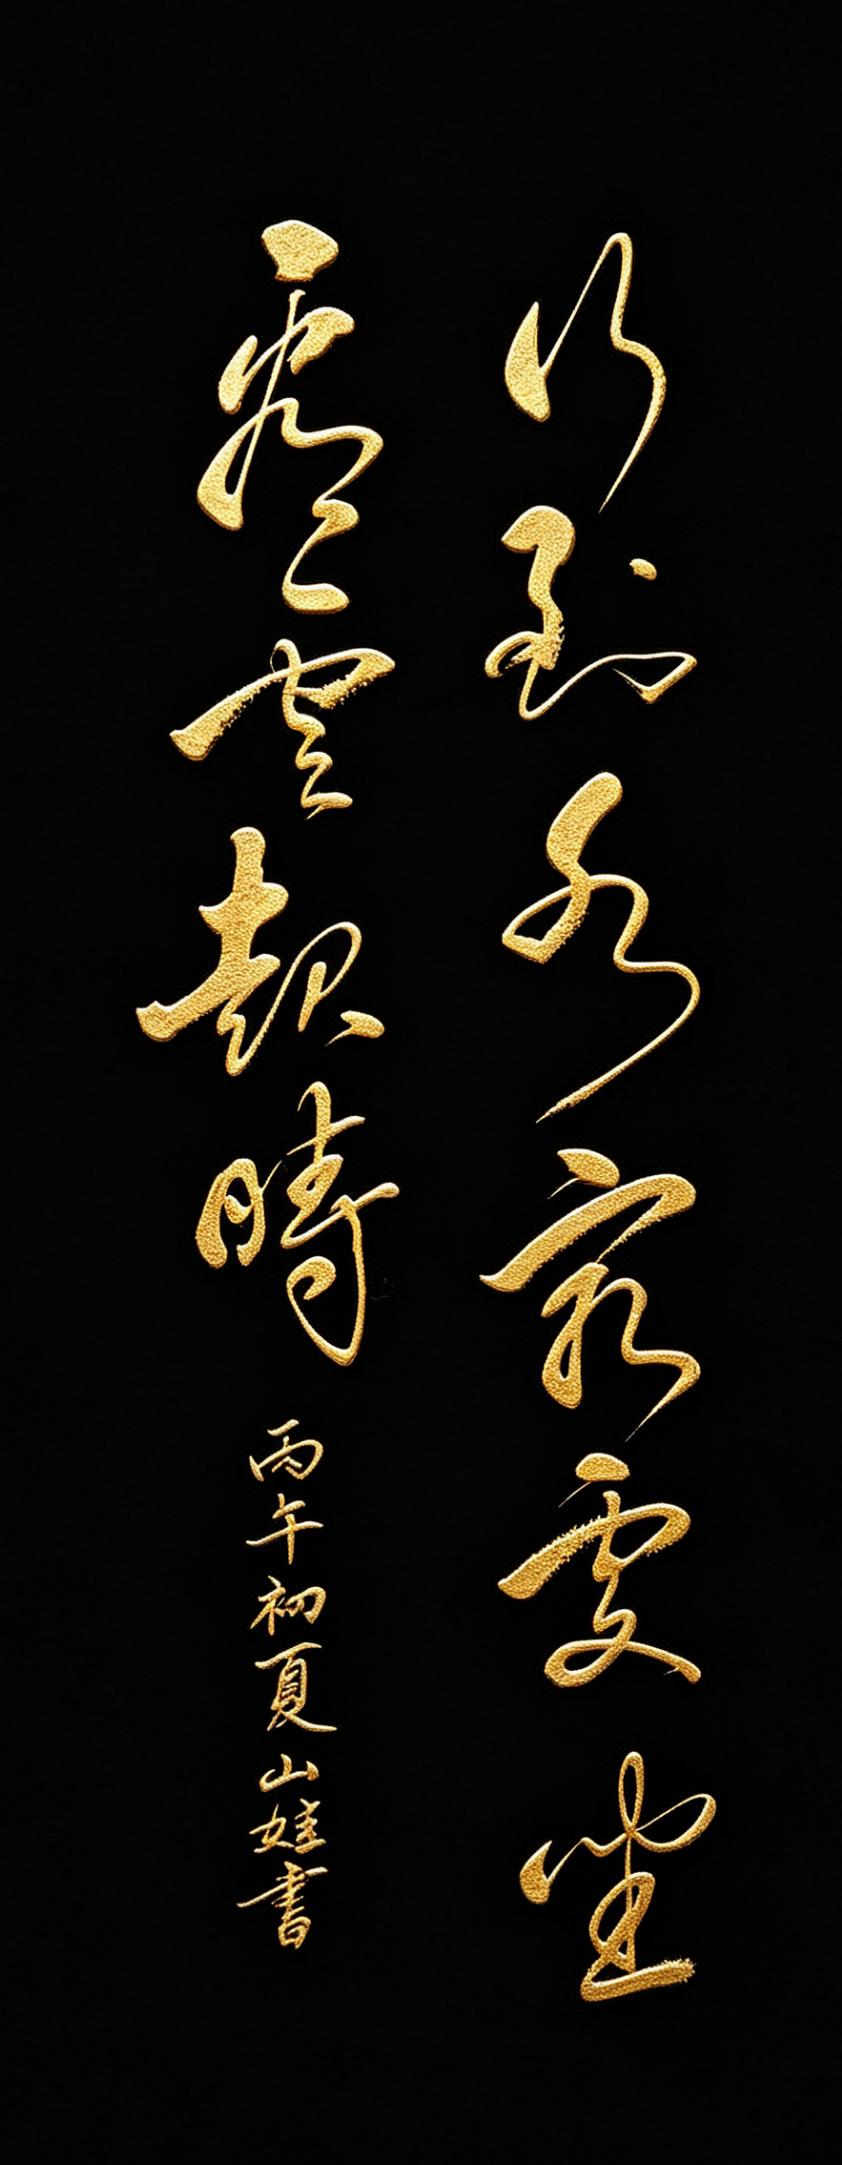 行到水窮處坐
看雲起時
丙午初夏山娃書